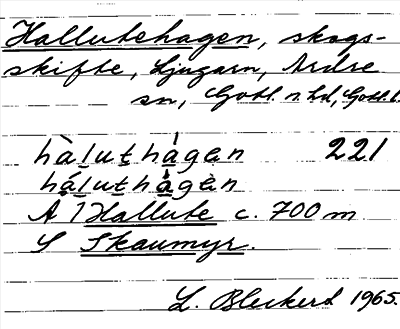 Hallutehagen, skogs-
skifte, Ljugarn, Ardre
sn, Gotl. n. hd, Gotl. l.
hàluthágen 221
háluthàgèn
Å 1 Hallute c. 700 m
S Skaumyr.
L. Bleckerd 1965.